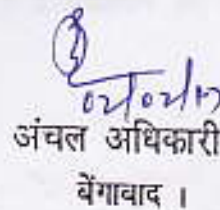 अंचल अधिकारी
बेंगाबाद ।